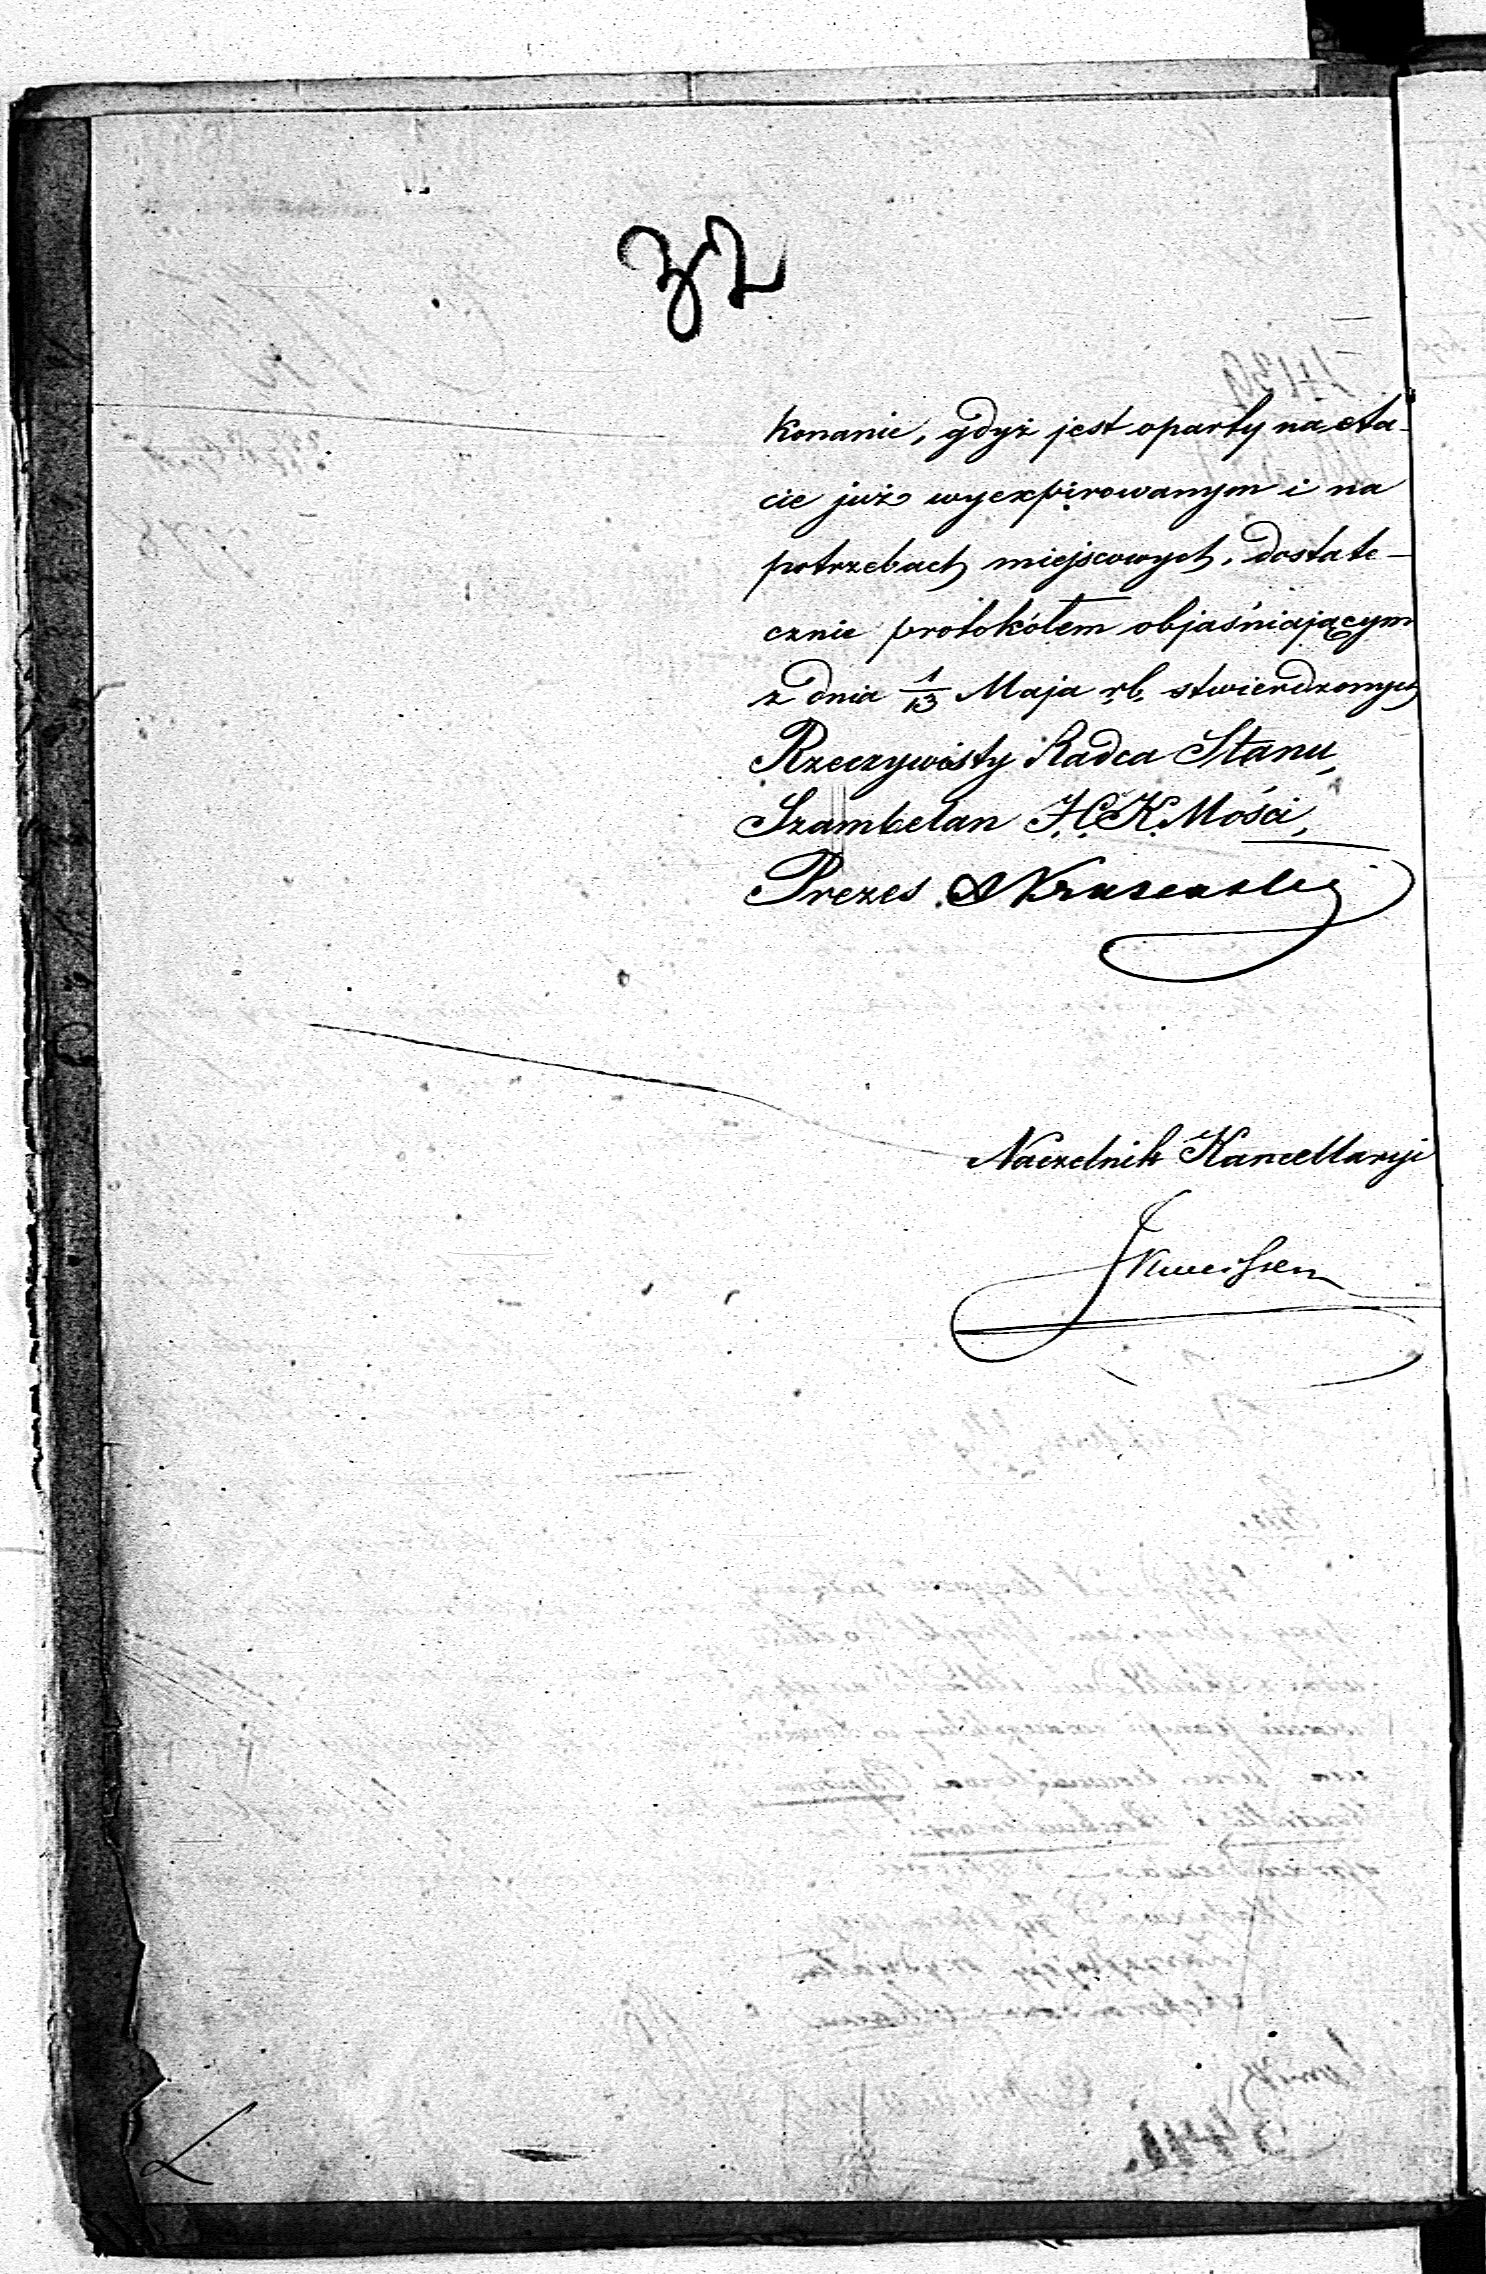 32
konanie, gdyż jest oparty na eta-
cie już wyexpirowanym i na
potrzebach miejscowych, dostate-
cznie protokółem objaśniającym
z dnia 1/13 Maja r.b. stwierdzonych
Rzeczywisty Radca Stanu,
Szambelan J.C.K. Mości,
Prezes
Naczelnik Kancellaryi